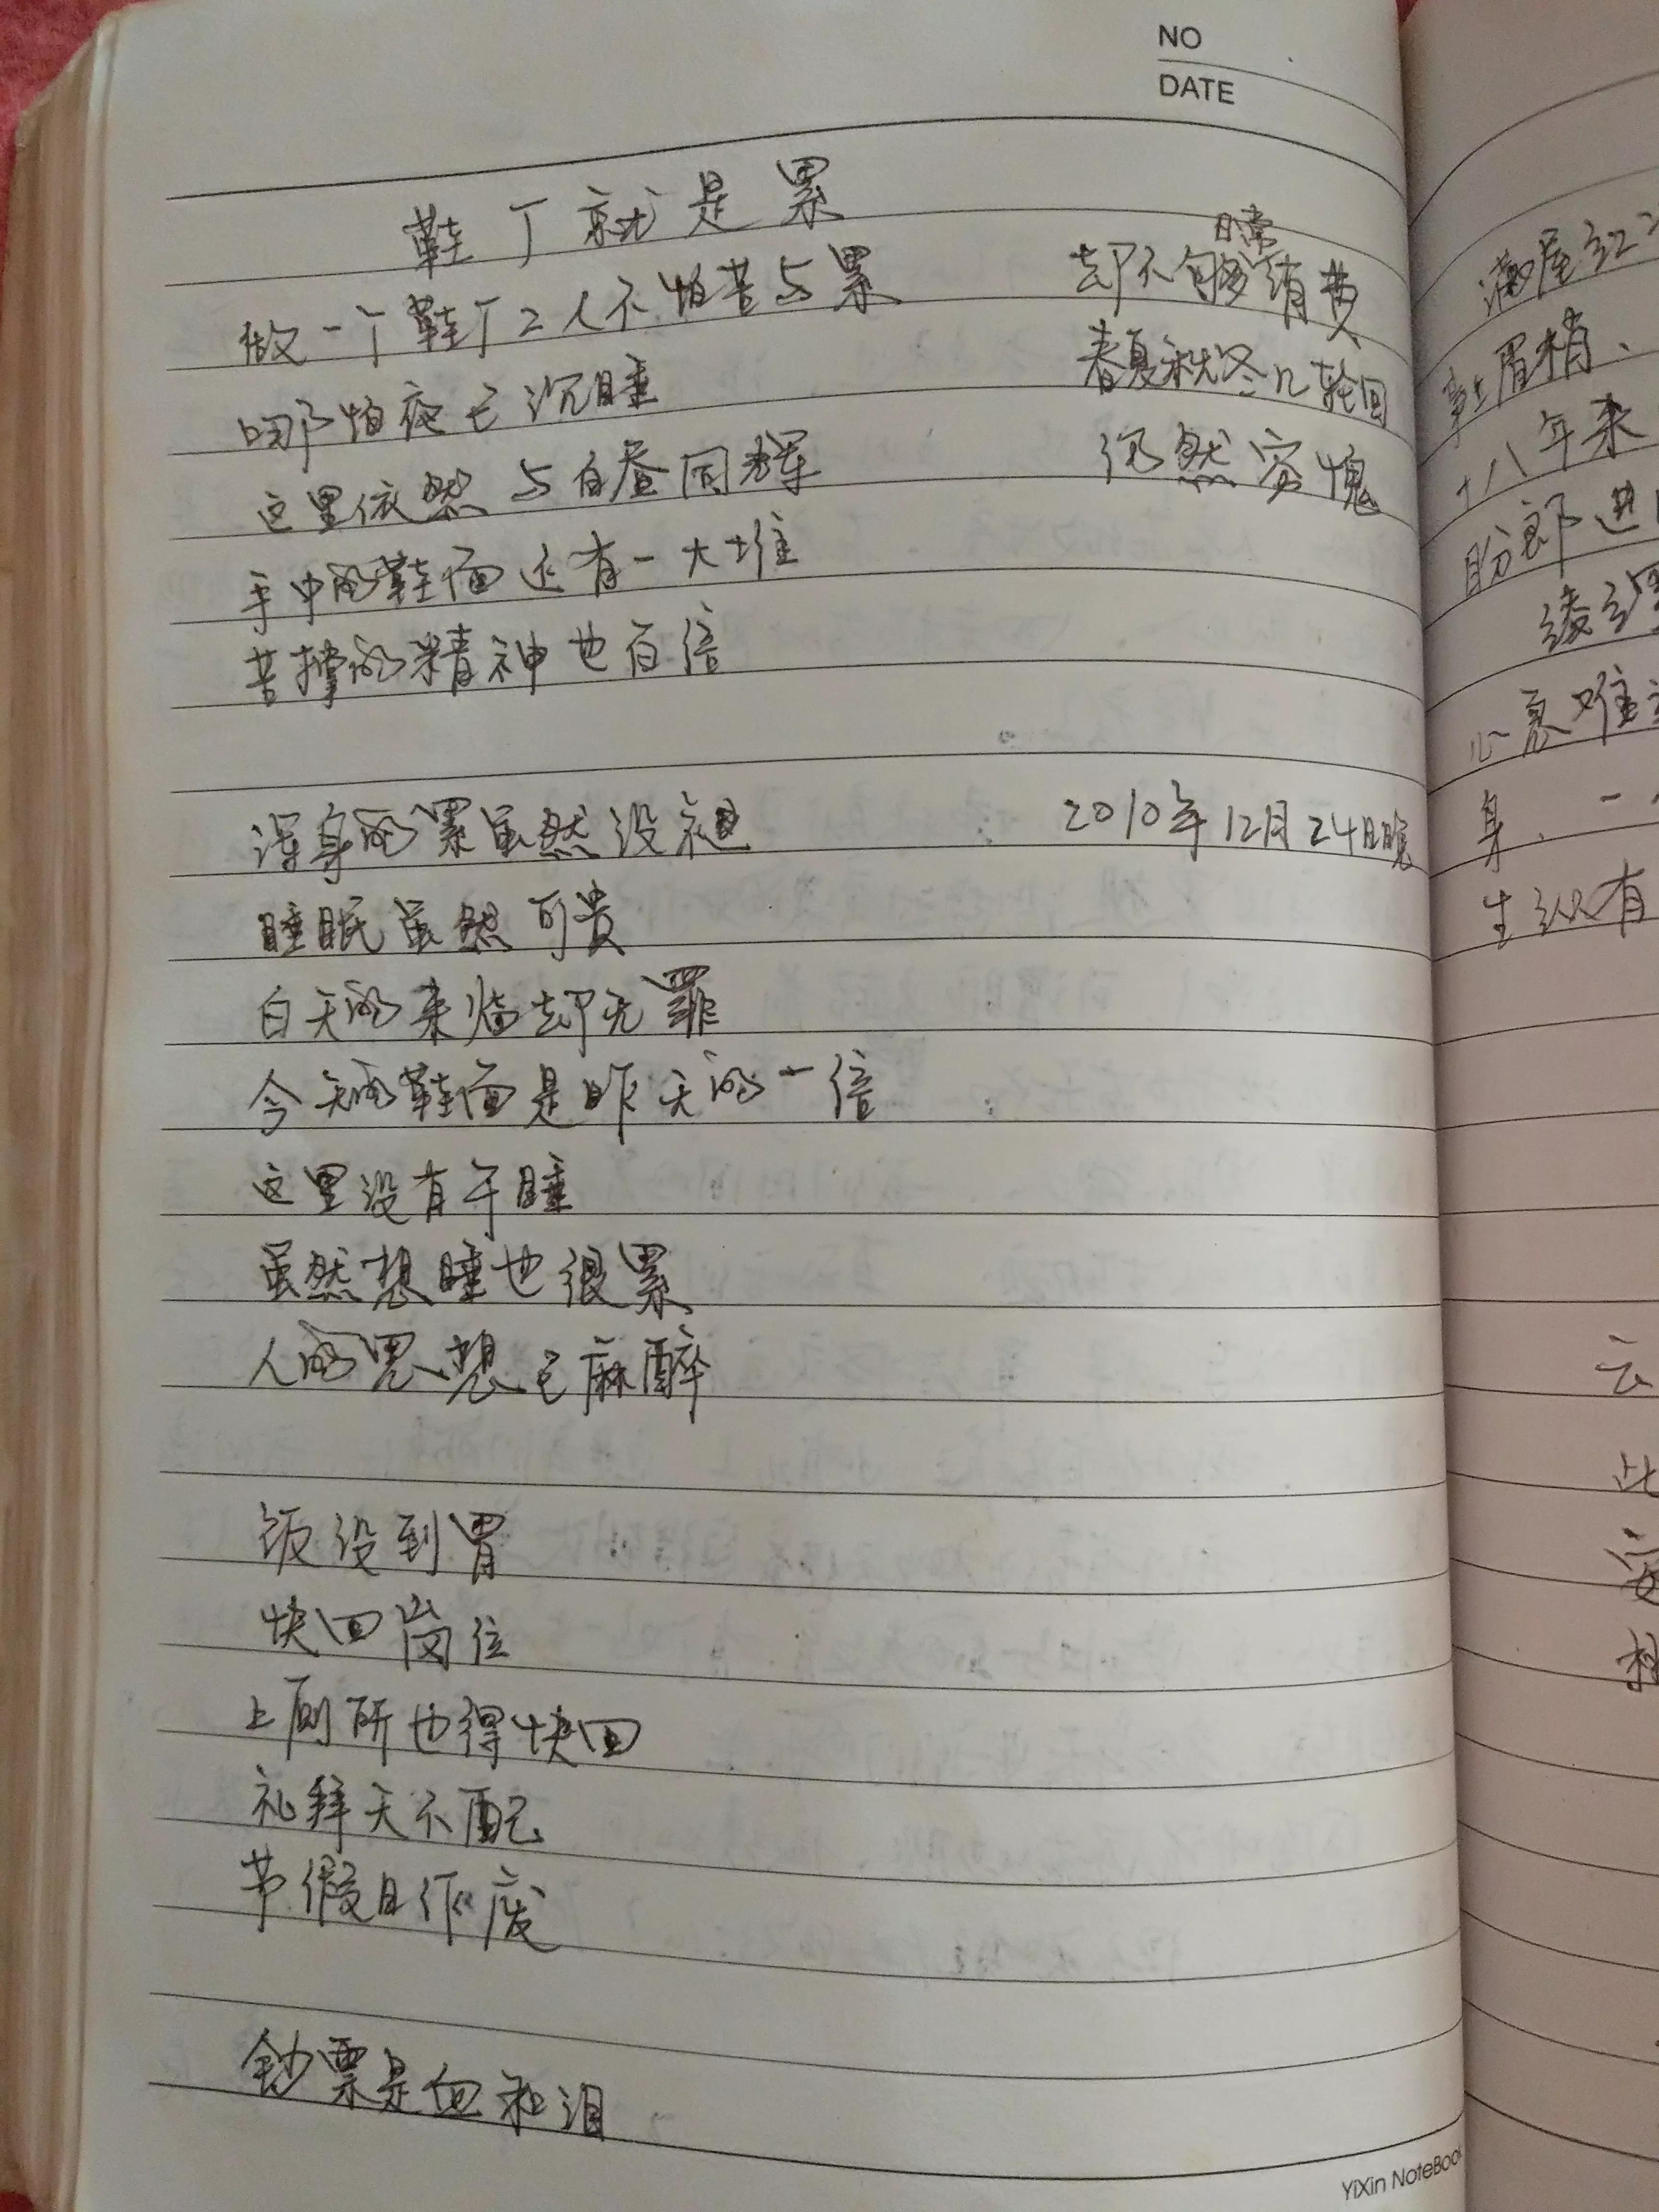 NO
DATE
鞋厂就是累
做一个鞋厂工人不怕苦与累
哪怕夜已沉睡
这里依然与白昼同辉
手中的鞋面还有一大堆
苦撑的精神也百倍
浑身的累虽然没褪
睡眠虽然可贵
白天的来临却无罪
今天的鞋面是昨天的一倍
这里没有午睡
虽然想睡也很累
人的思想已麻醉
饭没到胃
快回岗位
上厕所也得快回
礼拜天不配
节假日作废
钞票是血和泪
却不够日常消费
春夏秋冬几轮回
仍然穷愧
2010年12月24日晚
YiXin NoteBook
满屋红
眉梢、
十八年来
盼郎进
绫罗
心裏难
身、一
生纵有
云
此
安